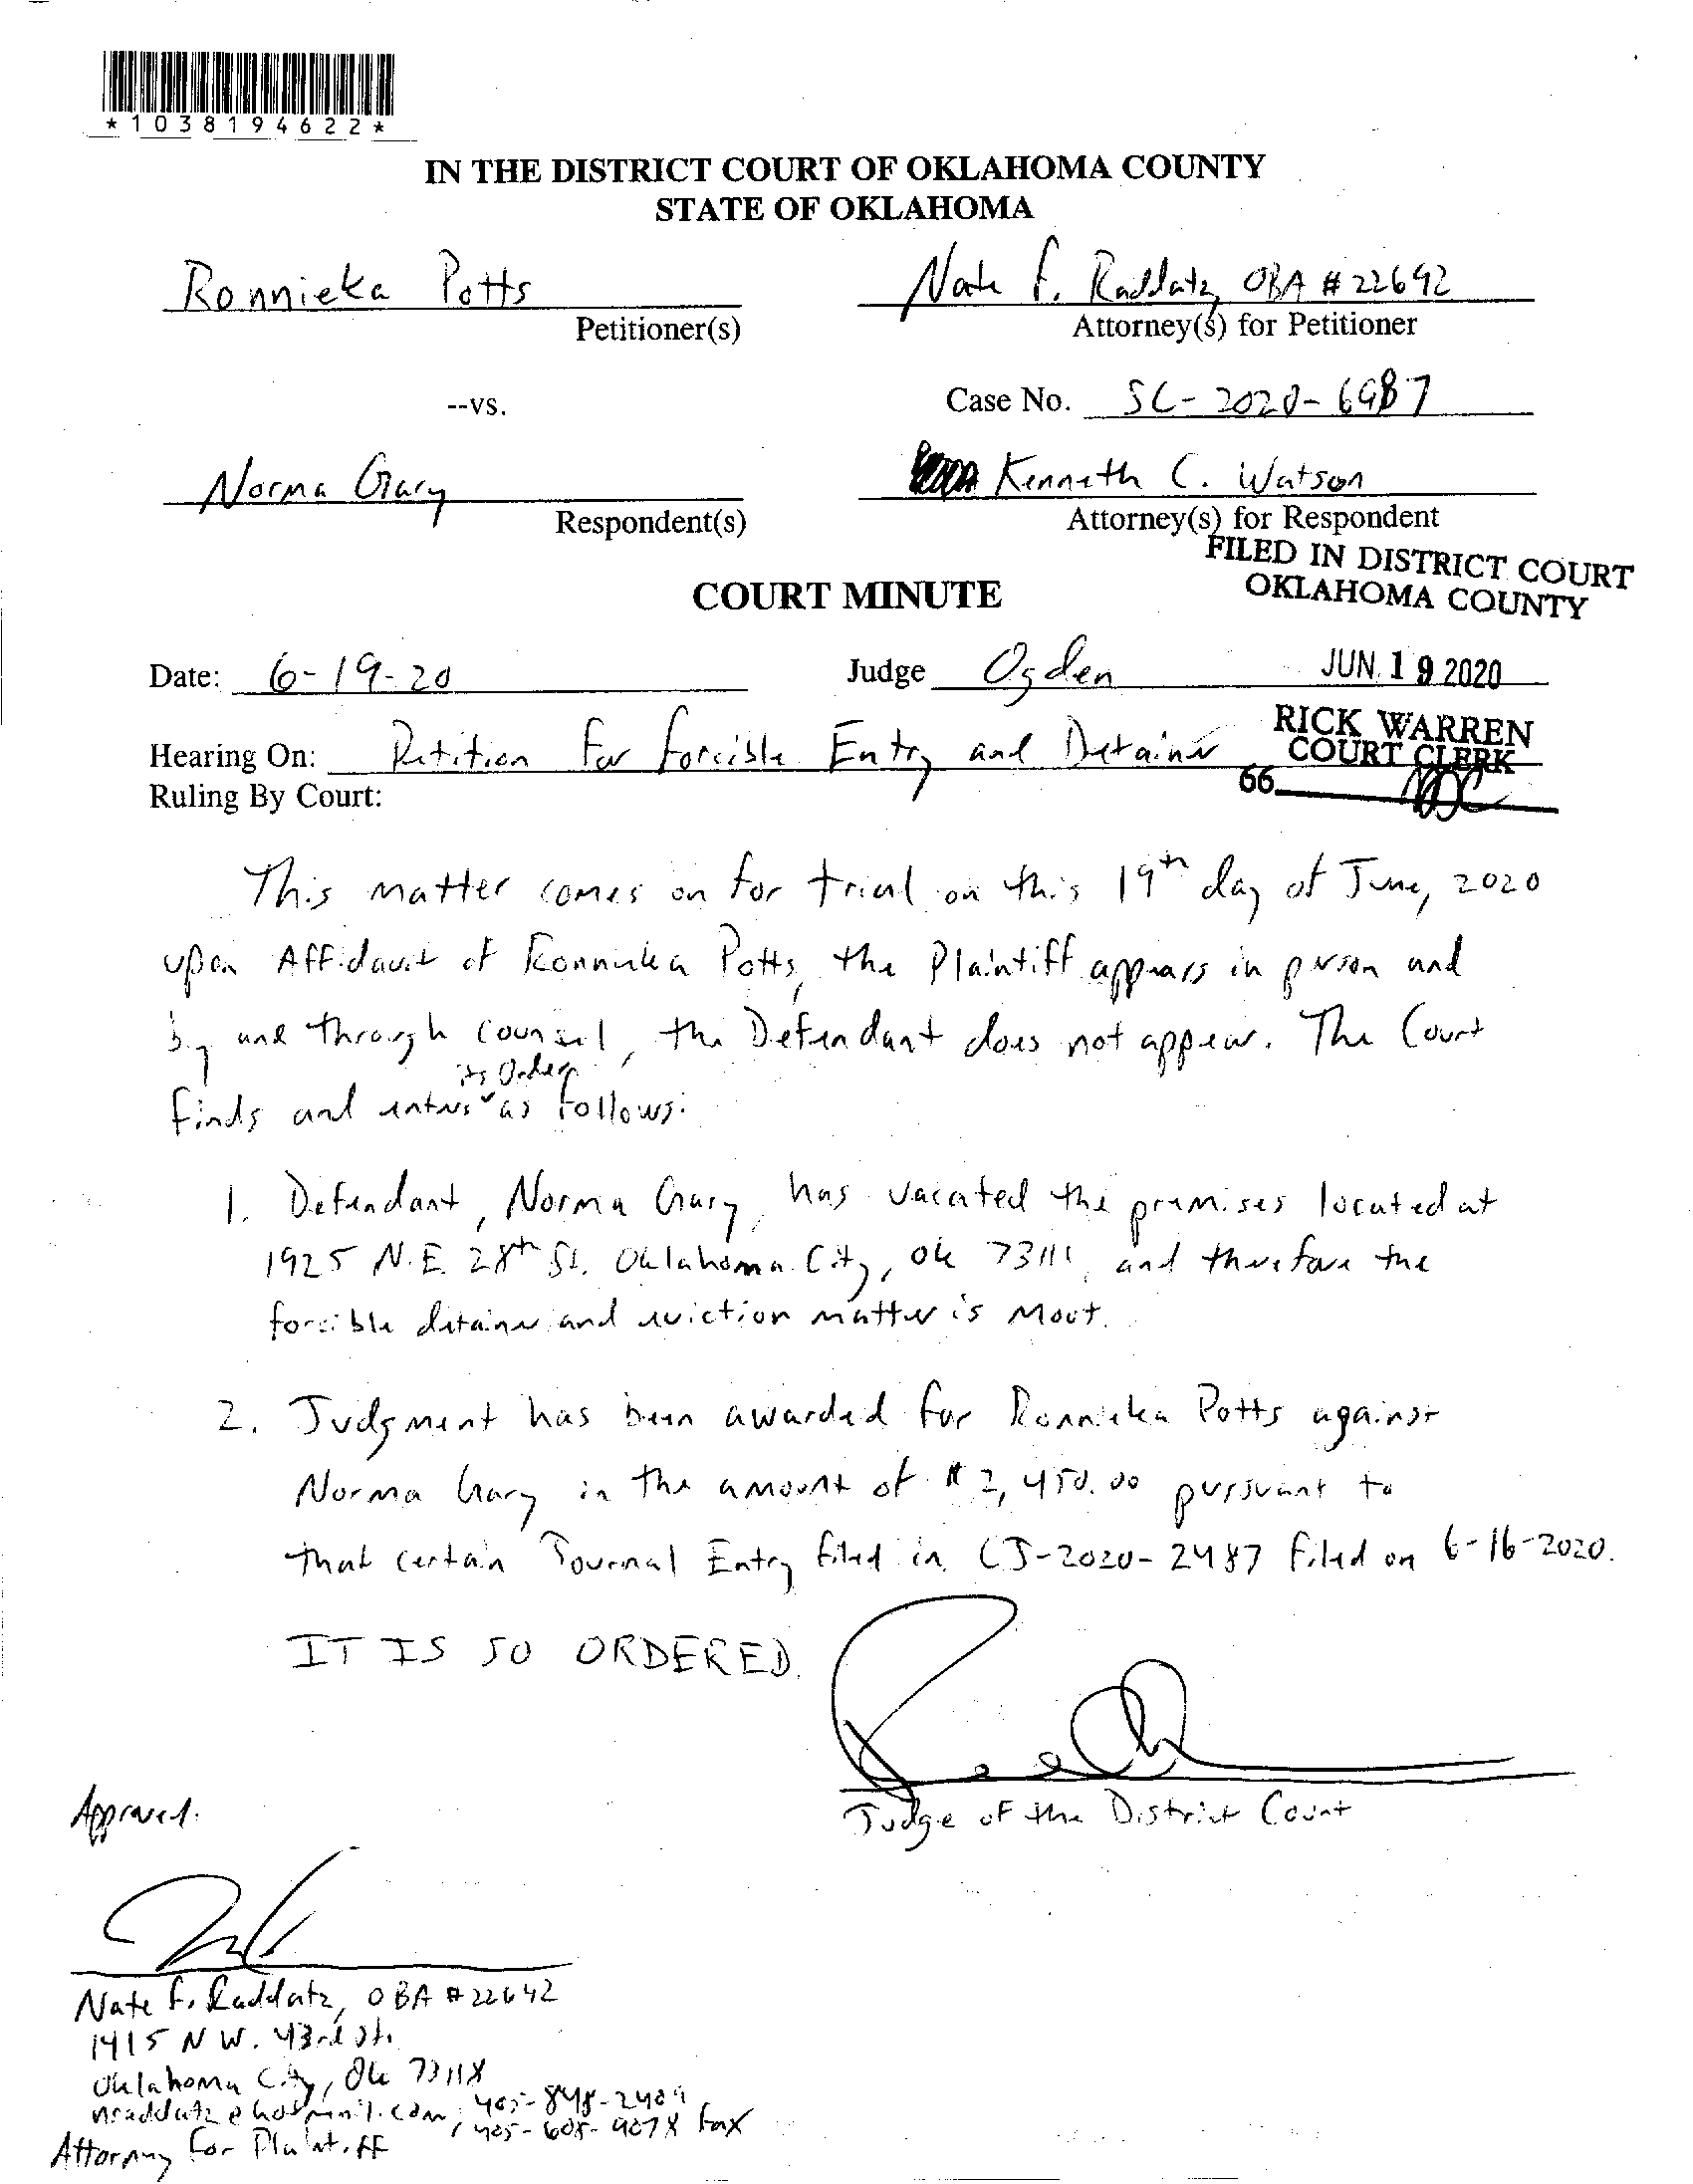 *1038194622*
IN THE DISTRICT COURT OF OKLAHOMA COUNTY
STATE OF OKLAHOMA
Ronnieka Potts
Petitioner(s)
Nate F. Raddatz, OBA # 22642
Attorney(s) for Petitioner
--vs.
Case No. SC-2020-6987
Norma Gary
Respondent(s)
Kenneth C. Watson
Attorney(s) for Respondent
FILED IN DISTRICT COURT
OKLAHOMA COUNTY
COURT MINUTE
Date: 6-19-20
Judge Ogden
JUN 19 2020
Hearing On: Petition For Forcible Entry and Detainer
RICK WARREN
COURT CLERK
66
Ruling By Court:
This matter comes on for trial on this 19th day of June, 2020
upon Affidavit of Ronnieka Potts, the Plaintiff appears in person and
by and through counsel, the Defendant does not appear. The Court
finds and enters its Order as follows:
1. Defendant, Norma Gary, has vacated the premises located at
1925 N.E. 28th St. Oklahoma City, Ok 73111, and therefore the
forcible detainer and eviction matter is moot.
2. Judgment has been awarded for Ronnieka Potts against
Norma Gary in the amount of $2,450.00 pursuant to
that certain Journal Entry filed in CJ-2020-2487 filed on 6-16-2020.
IT IS SO ORDERED.
Judge of the District Court
Approved:
Nate F. Raddatz, OBA #22642
1415 N W. 43rd St.
Oklahoma City, Ok 73118
nraddatz@hotmail.com, 405-848-2409
405-608-9078 fax
Attorney for Plaintiff